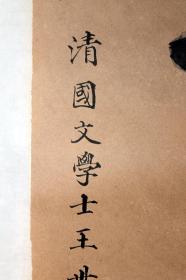 清國文學士王